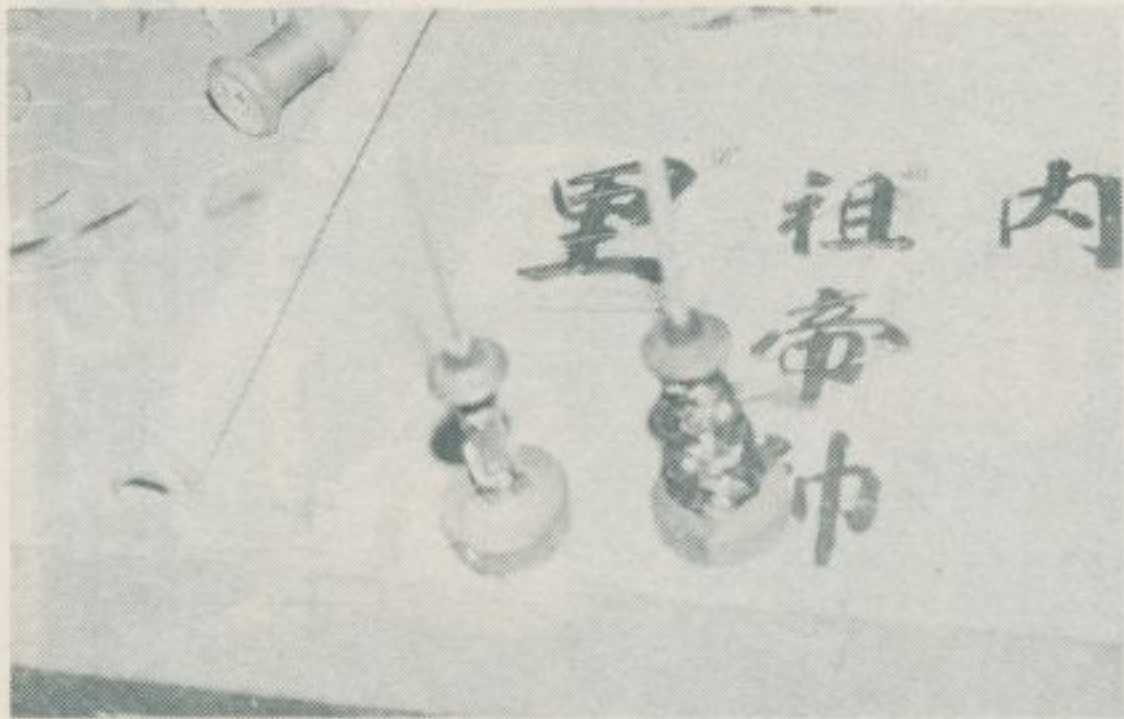 内
祖帝巾